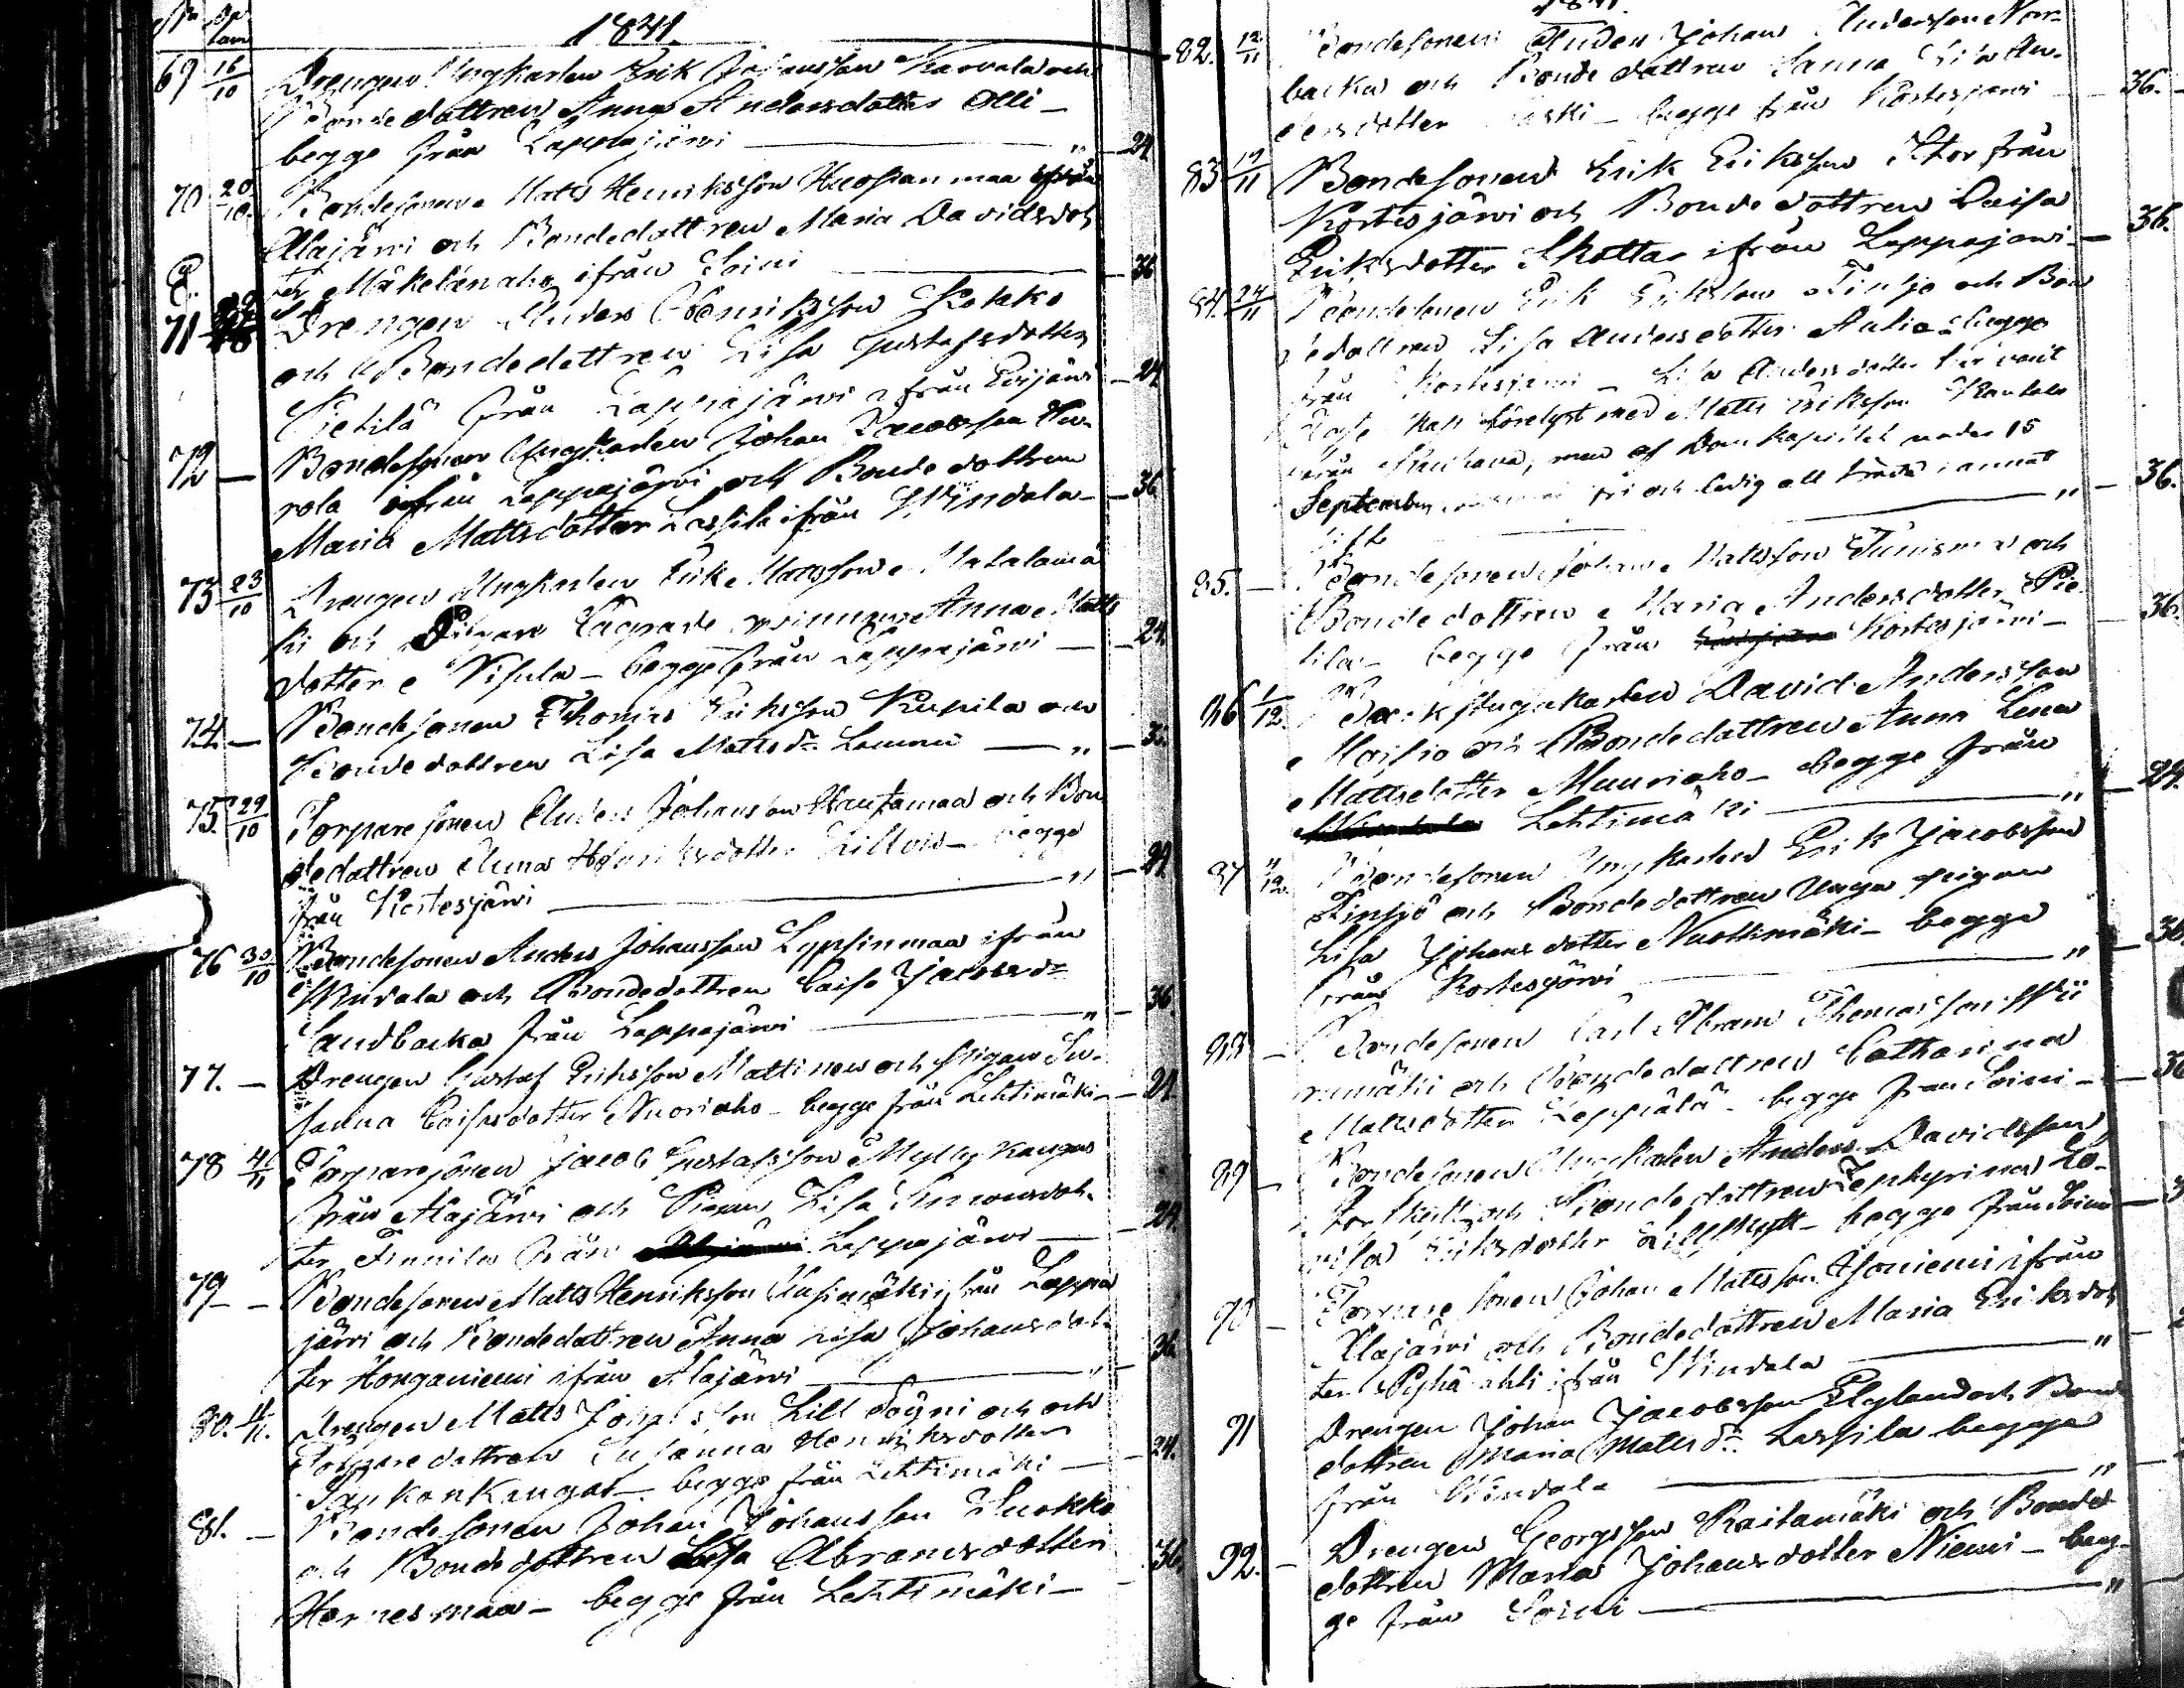 1841.
69 16/10 Drengen Ungkarlen Erik Johansson Karvala och
Bondedottren Anna Andersdotter Olli _
begge från Lappajärvi " 24
70 20/10 Bondesonen Matts Henriksson Huopanmaa ifrån
Alajärvi och Bondedottren Maria Davidsdot
ter Mäkelänaho ifrån Soini 36
71 Drengen Anders Henriksson Kokko
och Bondedottren Lisa Gustafsdotter
Pietilä från Lappajärvi o från Evijärvi 24
72 — Bondesonen Ungkarlen Johan Jacobsson
rola ifrån Lappajärvi och Bondedottren
Maria Mattsdotter Lassila ifrån Windala 36
73 23/10 Drengen Ungkarlen Erik Mattsson Matalamä
ki och Lägrade qvinnan Anna Matts
dotter Nisula _ begge från Lappajärvi 24.
74 — Bondesonen Thomas Eriksson Kupila och
Bondedottren Lisa Mattsdr Lammi " 36.
75. 29/10 Torparesonen Anders Johansson Rautamaa och Bon
dedottren Anna Henriksdotter Lillvis _ begge
från Kortesjärvi " 24
76 30/10 Bondesonen Anders Johansson Lypsinmaa ifrån
Windala och Bondedottren Caisa Jacobsdr
Sandbacka från Lappajärvi " 36.
77. — Drengen Gustaf Eriksson Mattinen och Pigan Su-
sanna Caisasdotter Nuoriaho _ begge från Lehtimäki 24.
78 4/11 Torparesonen Jacob Gustafsson Myllykangas
från Alajärvi och Pigan Lisa Simonsdot-
ter Finnilä från Lappajärvi 24.
79 — Bondesonen Matts Henriksson Uusimäki från Lappa
järvi och Bondedottren Anna Lisa Johansdot-
ter Honganiemi ifrån Alajärvi " 36.
80. 4/11. Drengen Matts Johansson Lill Söyri och och
Torparedottren Susanna Henriksdotter
Saukonkangas _ begge från Lehtimäki 24.
81. — Bondesonen Johan Johansson Suokko
och Bondedottren Lisa Abramsdotter
Hernesmaa _ begge från Lehtimäki _ 36.
1841.
82. 12/11 Bondesonen Anders Johan Andersson Norr-
backa och Bondedottren Sanna Lisa An-
dersdotter _ begge från Kortesjärvi 36.
83 19/11 Bondesonen Erik Eriksson Stor från
Kortesjärvi och Bondedottren Caisa
Eriksdotter Skottar ifrån Lappajärvi _ 36.
84. 24/11 Bondesonen Erik Eriksson Finsjö och Bon
dedottren Lisa Andersdotter Antila _ begge
från Kortesjärvi _ Lisa Andersdotter har varit
med Matts Eriksson Rantala
från Kauhava, men af Domkapitlet under 15
September fri och ledig att träda i annat
gifte " 36.
85. — Bondesonen Johan Mattsson Tunismaa och
Bondedottren Maria Andersdotter Pie
tilä _ begge från Kortesjärvi _ 36.
86 1/12. Backstugukarlen David Andersson
Maisio och Bondedottren Anna Lena
Mattsdotter Muuriaho _ begge från
Lehtimäki " 24.
87 Bondesonen Ungkarlen Erik Jacobsson
Finsjö och Bondedottren Unga pigan
Lisa Johansdotter Nuottimäki _ begge
från Kortesjärvi " 36
88 — Bondesonen Carl Abram Thomasson Wii
nimäki och Bondedottren Catharina
Mattsdotter Leppälä _ begge från Soini _ 36
89 — Bondesonen Ungkarlen Anders Davidsson
och Bondedottren Zephyrina Lo-
visa Eriksdotter Lillskytt _ begge från Soini
90 — Torparesonen Johan Mattsson Isoniemi ifrån
Alajärvi och Bondedottren Maria Eriksdot
ter Pyhälahti ifrån Windala "
91 Drengen Johan Jacobsson Nyland och Bonde
dottren Maria Mattsdr Lassila begge
från Windala "
92. — Drengen Georgsson Raitamäki och Bonde
dottren Maria Johansdotter Niemi _ beg-
ge från Soini "